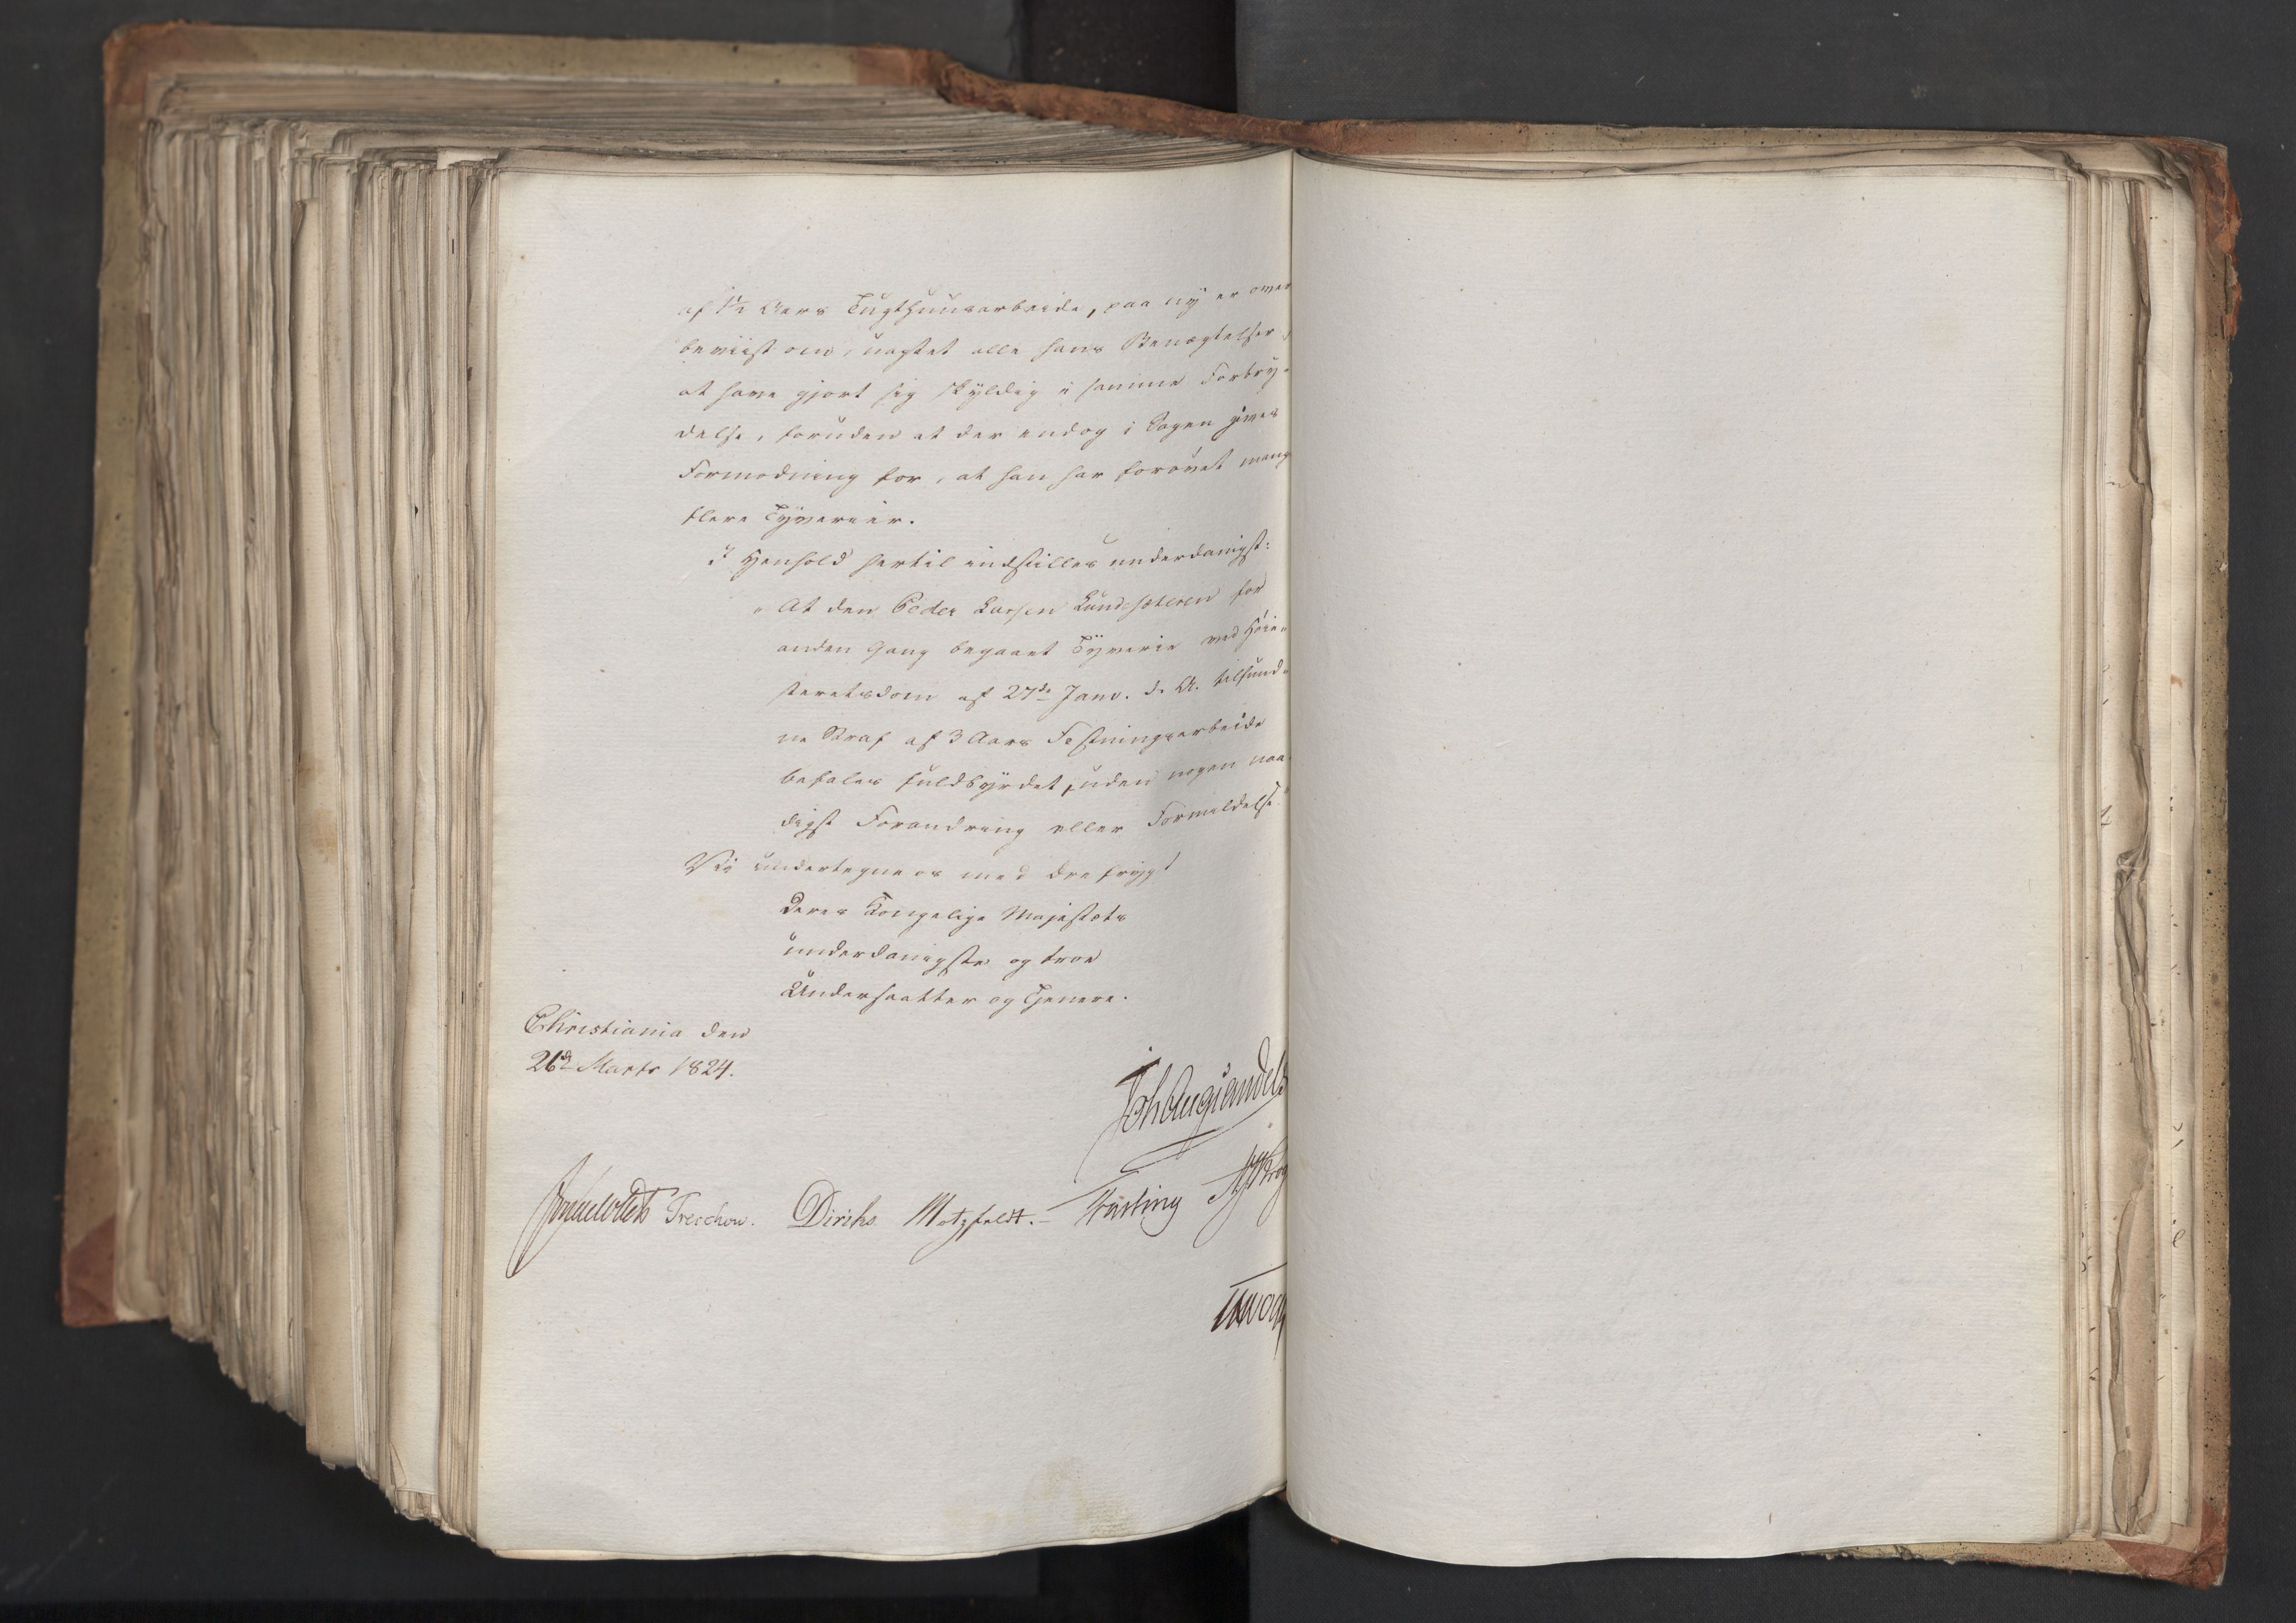 af 1½ Aars Tugthuusarbeide, paa ny er over
beviist om, uagtet alle hans Benægtelser,
at have gjort sig skyldig i samme Forbry-
delse, foruden at der endog i Sagen gives
Formodning for, at han har forøvet mang
flere Tyverier.
I Henhold hertil indstilles underdanigst:
"At den Peder Larsen Lundesæteren for
anden Gang begaaet Tyverie ved Høie-
steretsdom af 27de Janv. d. A. tilfund-
ne Straf af 3 Aars Fæstningsarbeide
befales fuldbyrdet, uden nogen naa-
digst Forandring eller Formildelse."
Vii undertegne os med dre frygt
Deres Kongelige Majestæts
underdanigste og troe
Undersaatter og Tjenere.
Christiania den
26de Marts 1824.
Joh Aug Sandels
Sommerhielm Treschow. Diriks. Motzfeldt. Fasting Krog